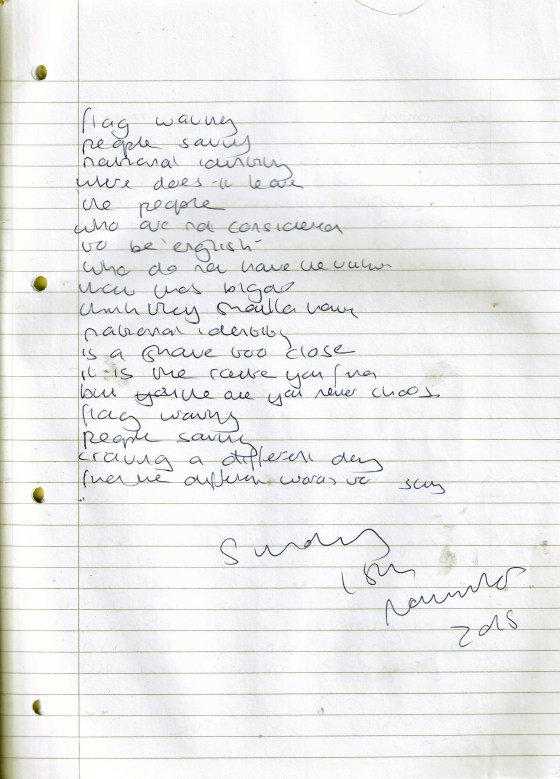 flag waving
people saving
national identity
where does it leave
the people
who are not considered
to be 'english'
who do not have the values
that bigots
think they should have
national identity
is a shave too close
it is the cause you find
but the one you never choose
flag waving
people saving
craving a different day
find the different words to say
Sunday
15th
November
2015